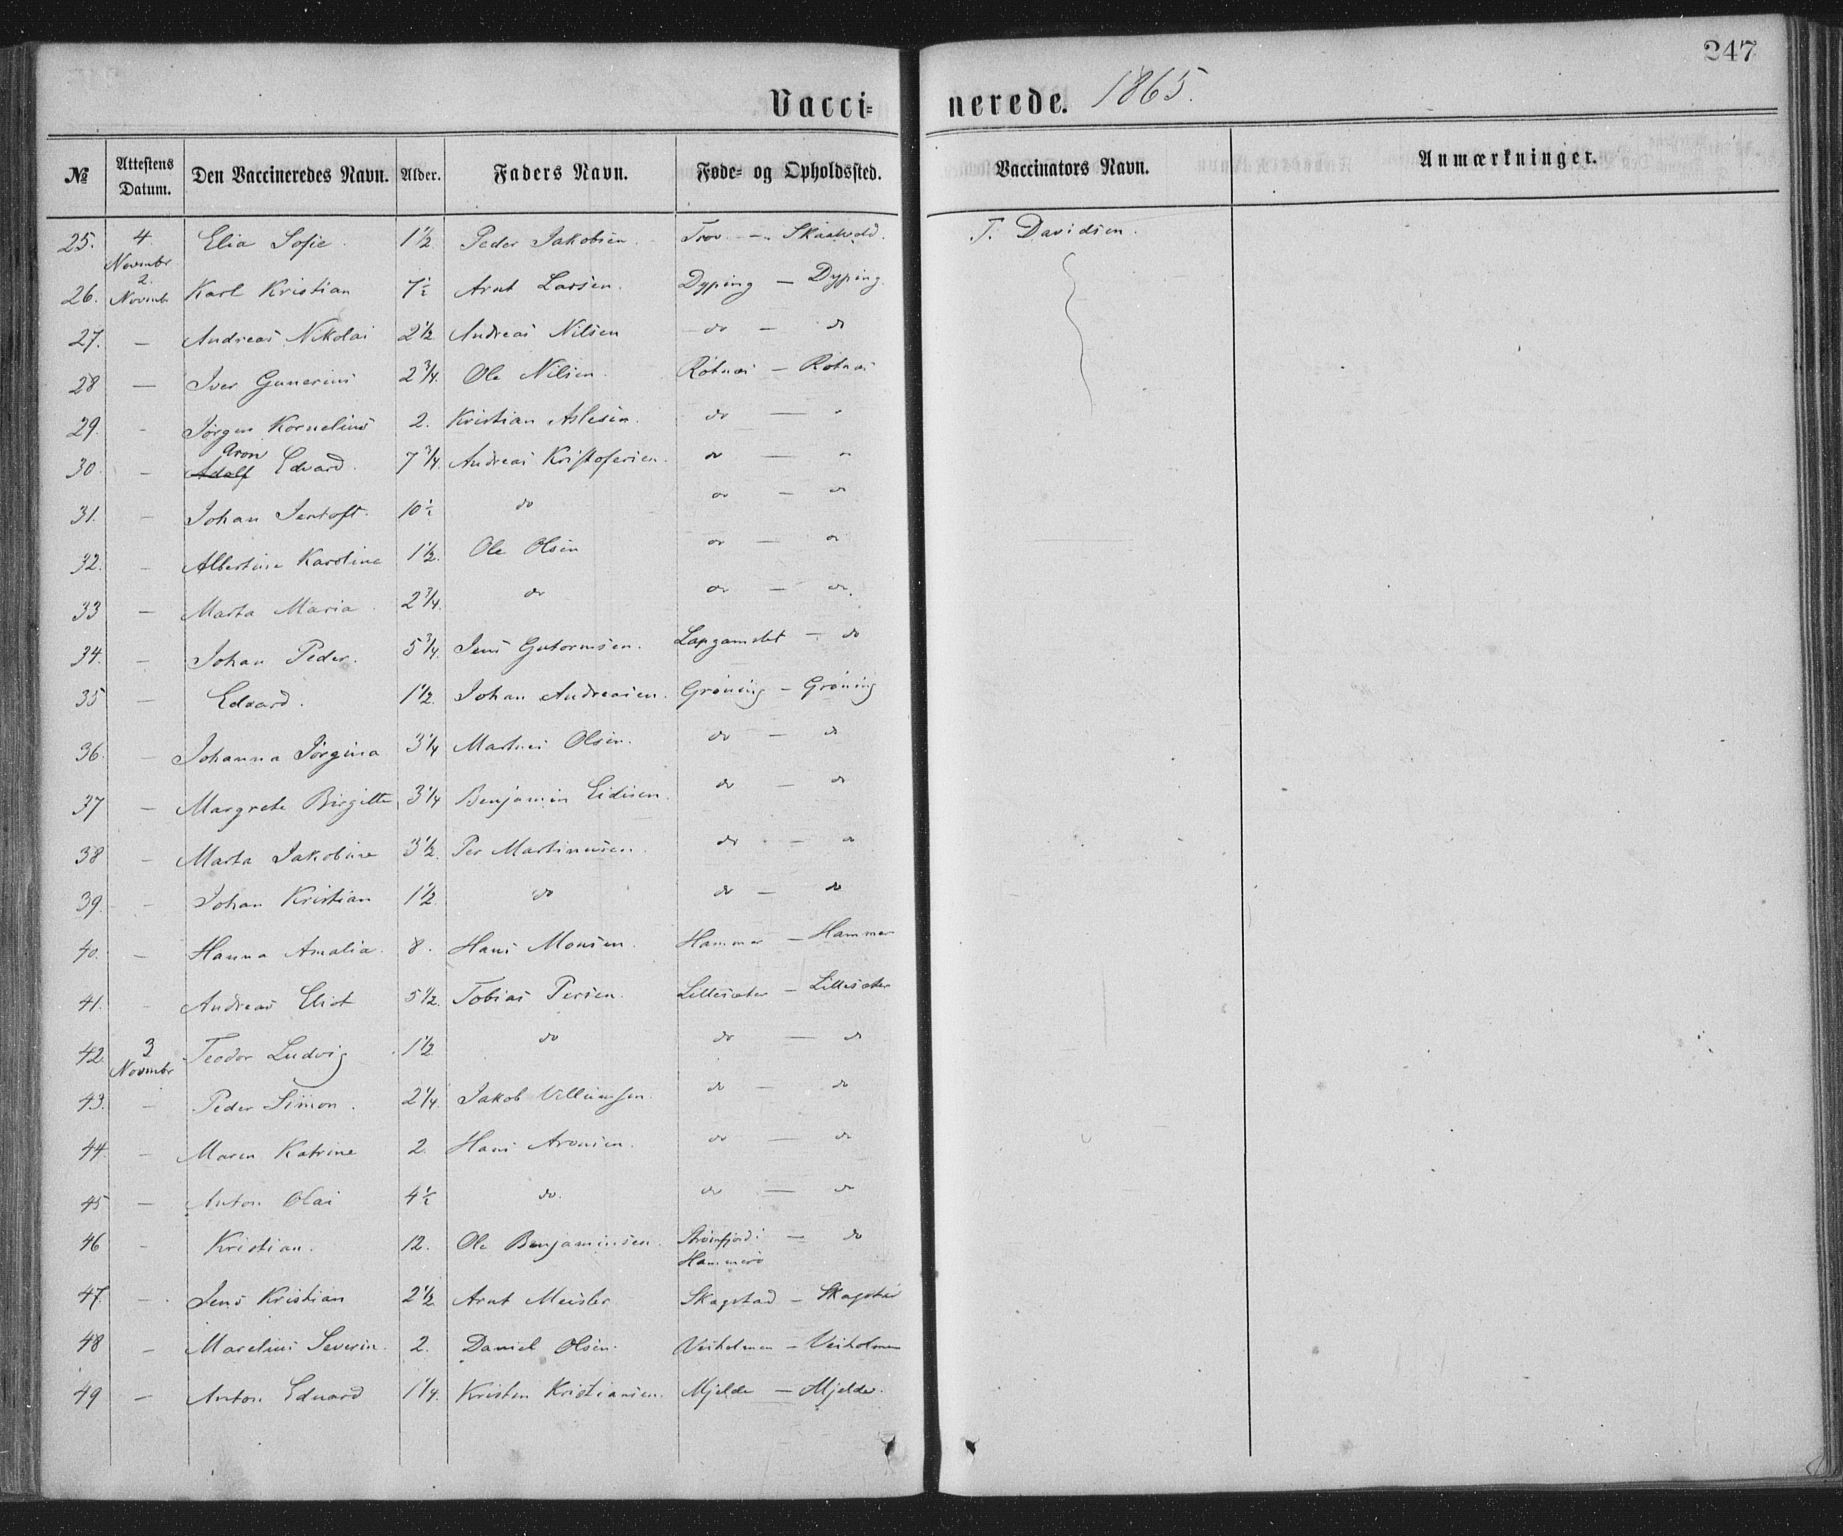 247
Vacci= nerede. 1865.
№ Attestens Datum. Den Vaccineredes Navn. Alder. Faders Navn. Føde= og Opholdssted. Vaccinators Navn. Anmærkninger.
25. 4 Novembr Elia Sofie. 1½ Peder Jakobsen. Trov — Skaalvold. T. Davidsen.
26. 2. Novembr Karl Kristian 7½ Arnt Larsen. Dyping — Dyping
27. — Andreas Nikolai 2½ Andreas Nilsen do — do
28 — Iver Gunerius 2¾. Ole Nilsen. Rotnæs — Rotnæs
29. - Jørgen Kornelius 2. Kristian Aslesen. do — "
30. - Adolf Aron Edvard. 7¾. Andreas Kristofersen. do — do
31. - Johan Jentoft. 10½ do do — do
32. - Albertine Karoline 1½. Ole Olsen do — do
33 — Marta Maria. 2¾. do do — do.
34. - Johan Peder. 5¾. Jens Gutormsen. — do
35 — Edvard. 1½. Johan Andreasen. Grøning — Grøning
36. - Johanna Jørgina 3¼ Martines Olsen. do — do
37 — Margrete Birgitte 3¼ Benjamin Eidisen. do — do
38 - Marta Jakobine 3½. Per Martinusen. do — do
39. - Johan Kristian 1½. do do — do
40. - Hanna Amalia. 8. Hans Monsen. Hammer — Hammer
41. - Andreas Eliot 5½. Tobias Persen. Lillesæter — Lillesæter
42 3 Novembr Teodor Ludvig 1½ do do — do
43. - Peder Simon. 2¼ Jakob Villumsen. do — do
44. - Maren Katrine 2. Hans Aronsen. do — do
45 — Anton Olai 4½ do. do — do
46 - Kristian. 12. Ole Benjaminsen. Hammerø — do
47. - Jens Kristian 2½ Arnt Meisler Skagstad — Skagstad
48 - Marelius Severin. 2. Daniel Olsen. Veiholmen — Veiholmen
49 — Anton Edvard 1¼. Kristen Kristiansen. Mjelde — Mjelde.